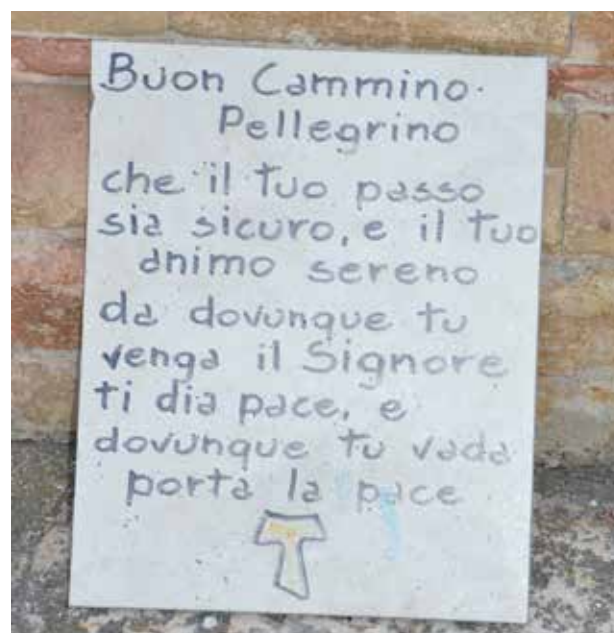 Buon Cammino.
Pellegrino
che il tuo passo
sia sicuro, e il tuo
animo sereno
da dovunque tu
venga il Signore
ti dia pace, e
dovunque tu vada
porta la pace